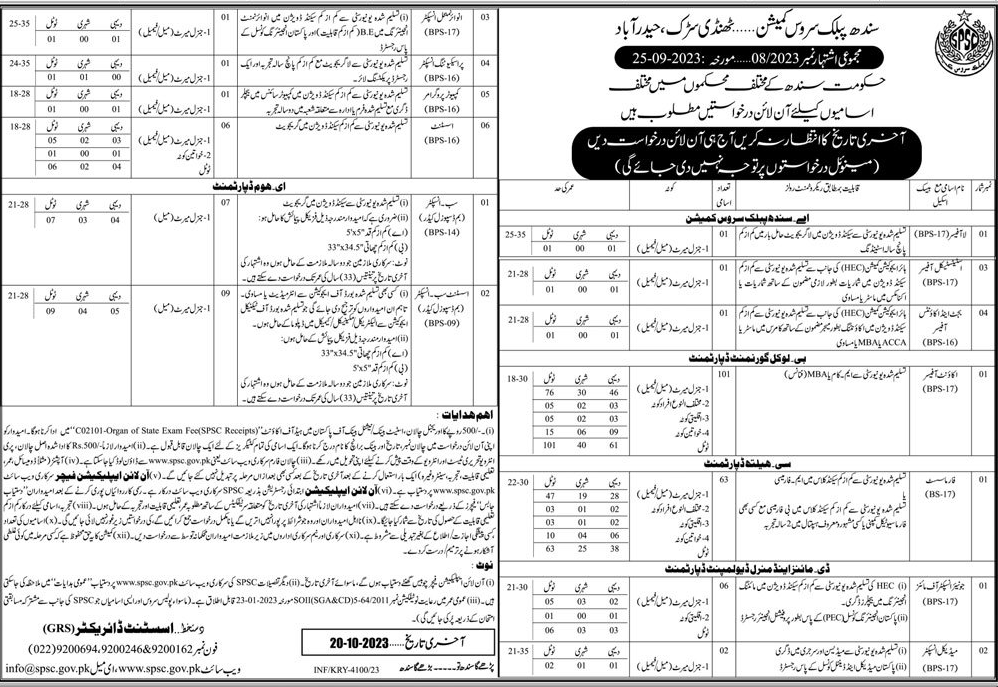 سندھ پبلک سروس کمیشن......ٹھنڈی سڑک، حیدرآباد
SPSC
مجموعی اشتہار نمبر 08/2023.....مورخہ :2023-09-25
حکومت سندھ کے مختلف محکموں میں مختلف
اسامیوں کیلئے آن لائن درخواستیں مطلوب ہیں
آخری تاریخ کا انتظار نہ کریں آج ہی آن لائن درخواست دیں
(مینوئل درخواستوں پر توجہ نہیں دی جائے گی)
نمبر شمار نام اسامی مع بیسک اسکیل قابلیت بمطابق ریکروٹمنٹ رولز تعداد اسامی کوٹہ عمر کی حد
اے۔ سندھ پبلک سروس کمیشن
01 لاء آفیسر (BPS-17) تسلیم شدہ یونیورسٹی سے سیکنڈ ڈویژن میں لاء گریجویٹ حامل بار میں کم از کم پانچ سالہ اسٹینڈنگ 01 1- جنرل میرٹ (میل/فیمیل) دیہی 01 شہری 00 ٹوٹل 01 25-35
03 اسٹیٹسٹیکل آفیسر (BPS-17) ہائر ایجوکیشن کمیشن (HEC) کی جانب سے تسلیم شدہ یونیورسٹی سے کم از کم سیکنڈ ڈویژن میں شماریات بطور لازمی مضمون کے ساتھ شماریات یا اکنامکس میں ماسٹر یا مساوی 01 1- جنرل میرٹ (میل/فیمیل) دیہی 01 شہری 00 ٹوٹل 01 21-28
04 بجٹ اینڈ اکاؤنٹس آفیسر (BPS-16) ہائر ایجوکیشن کمیشن (HEC) کی جانب سے تسلیم شدہ یونیورسٹی سے کم از کم سیکنڈ ڈویژن میں اکاؤنٹنگ بطور میجر مضمون کے ساتھ کامرس میں ماسٹر یا ACCA یا MBA یا مساوی 01 1- جنرل میرٹ (میل/فیمیل) دیہی 01 شہری 00 ٹوٹل 01 21-28
بی۔ لوکل گورنمنٹ ڈپارٹمنٹ
01 اکاؤنٹ آفیسر (BPS-17) تسلیم شدہ یونیورسٹی سے ایم۔کام یا MBA (فنانس) 101 دیہی شہری ٹوٹل 18-30
1- جنرل میرٹ (میل/فیمیل) 46 30 76
2- مختلف النوع افراد کوٹہ 03 02 05
3- اقلیتی کوٹہ 03 02 05
4- خواتین کوٹہ 09 06 15
ٹوٹل 61 40 101
سی۔ ہیلتھ ڈپارٹمنٹ
01 فارماسسٹ (BS-17) تسلیم شدہ یونیورسٹی سے کم از کم سیکنڈ کلاس میں ایم۔ فارمیسی
یا
تسلیم شدہ یونیورسٹی سے کم از کم سیکنڈ کلاس میں بی فارمیسی مع کسی بھی فارماسیوٹیکل کمپنی یا کسی مشہور و معروف ہسپتال میں 2 سالہ تجربہ 63 دیہی شہری ٹوٹل 22-30
1- جنرل میرٹ (میل/فیمیل) 28 19 47
2- مختلف النوع افراد کوٹہ 02 01 03
3- اقلیتی کوٹہ 02 01 03
4- خواتین کوٹہ 06 04 10
ٹوٹل 38 25 63
ڈی۔ مائنز اینڈ منرل ڈیولپمنٹ ڈپارٹمنٹ
01 جونیئر انسپکٹر آف مائنز (BPS-17) (i) HEC کی تسلیم شدہ یونیورسٹی سے کم از کم سیکنڈ ڈویژن میں مائننگ انجینئرنگ میں بیچلرز ڈگری۔
(ii) پاکستان انجینئرنگ کونسل (PEC) کے پاس بطور پروفیشنل انجینئر رجسٹرڈ 06 دیہی شہری ٹوٹل 21-30
1- جنرل میرٹ (میل/فیمیل) 03 02 05
2- اقلیتی کوٹہ 00 01 01
ٹوٹل 03 03 06
02 میڈیکل انسپکٹر (BPS-17) (i) تسلیم شدہ یونیورسٹی سے میڈیسن اور سرجری میں ڈگری
(ii) پاکستان میڈیکل اینڈ ڈینٹل کونسل کے پاس رجسٹرڈ 02 1- جنرل میرٹ (میل/فیمیل) دیہی 01 شہری 01 ٹوٹل 02 21-35
03 انوائرنمنٹل انسپکٹر (BPS-17) (i) تسلیم شدہ یونیورسٹی سے کم از کم سیکنڈ ڈویژن میں انوائرنمنٹ انجینئرنگ میں B.E (کم از کم قابلیت) اور پاکستان انجینئرنگ کونسل کے پاس رجسٹرڈ 01 1- جنرل میرٹ (میل/فیمیل) دیہی 01 شہری 00 ٹوٹل 01 25-35
04 پراسیکیوٹنگ انسپکٹر (BPS-16) تسلیم شدہ یونیورسٹی سے لاء گریجویٹ مع کم از کم پانچ سالہ تجربہ اور ایک رجسٹرڈ پریکٹسنگ لائر۔ 01 1- جنرل میرٹ (میل/فیمیل) دیہی 00 شہری 01 ٹوٹل 01 24-35
05 کمپیوٹر پروگرامر (BPS-16) تسلیم شدہ یونیورسٹی سے کم از کم سیکنڈ ڈویژن میں کمپیوٹر سائنس میں بیچلر ڈگری مع تسلیم شدہ فرم یا ادارہ سے متعلقہ شعبہ میں دو سالہ تجربہ 01 1- جنرل میرٹ (میل/فیمیل) دیہی 01 شہری 00 ٹوٹل 01 18-28
06 اسسٹنٹ (BPS-16) تسلیم شدہ یونیورسٹی سے کم از کم سیکنڈ ڈویژن میں گریجویٹ 06 دیہی شہری ٹوٹل 18-28
1- جنرل میرٹ (میل/فیمیل) 03 02 05
2- خواتین کوٹہ 01 00 01
ٹوٹل 04 02 06
ای۔ ہوم ڈپارٹمنٹ
01 سب۔انسپکٹر (بم ڈسپوزل کیڈر) (BPS-14) (i) تسلیم شدہ یونیورسٹی سے سیکنڈ ڈویژن میں گریجویٹ
(ii) ضروری ہے کہ امیدوار مندرجہ ذیل فزیکلی پیمائش کے حامل ہو:
(اے) کم از کم قد 5'x5"
(بی) کم از کم چھاتی 33"x34.5"
نوٹ: سرکاری ملازمین جو دو سالہ ملازمت کے حامل ہوں وہ اشتہار کی آخری تاریخ پر تینتیس (33) سال کی عمر تک درخواست دے سکتے ہیں۔ 07 1- جنرل میرٹ (میل) دیہی 04 شہری 03 ٹوٹل 07 21-28
02 اسسٹنٹ سب۔انسپکٹر (بم ڈسپوزل کیڈر) (BPS-09) (i) کسی بھی تسلیم شدہ بورڈ آف ایجوکیشن سے انٹرمیڈیٹ یا مساوی۔ تاہم ان امیدواروں کو ترجیح دی جائے گی جو تسلیم شدہ بورڈ آف ٹیکنیکل ایجوکیشن سے الیکٹریکل/مکینیکل/کیمیکل میں ڈپلومہ کے حامل ہوں۔
(ii) امیدوار مندرجہ ذیل فزیکلی پیمائش کے حامل ہوں:
(اے) کم از کم چھاتی 33"x34.5"
(بی) کم از کم قد 5'x5"
نوٹ: سرکاری ملازمین جو دو سالہ ملازمت کے حامل ہوں وہ اشتہار کی آخری تاریخ پر تینتیس (33) سال کی عمر تک درخواست دے سکتے ہیں۔ 09 1- جنرل میرٹ (میل) دیہی 05 شہری 04 ٹوٹل 09 21-28
اہم ہدایات :
(i)۔/500 روپے کا اوریجنل چالان، اسٹیٹ بینک/نیشنل بینک آف پاکستان میں ہیڈ آف اکاؤنٹ "C02101-Organ of State Exam Fee(SPSC Receipts)" میں ادا کرنا ہوگا۔
نوٹ :
دستخط۔۔اسسٹنٹ ڈائریکٹر (GRS)
فون نمبر 9200162&9200246 ,9200694(022)
ویب سائٹ www.spsc.gov.pk، ای میل info@spsc.gov.pk
آخری تاریخ 20-10-2023
INF/KRY-4100/23 پڑھے گا سندھ تو..... بڑھے گا سندھ